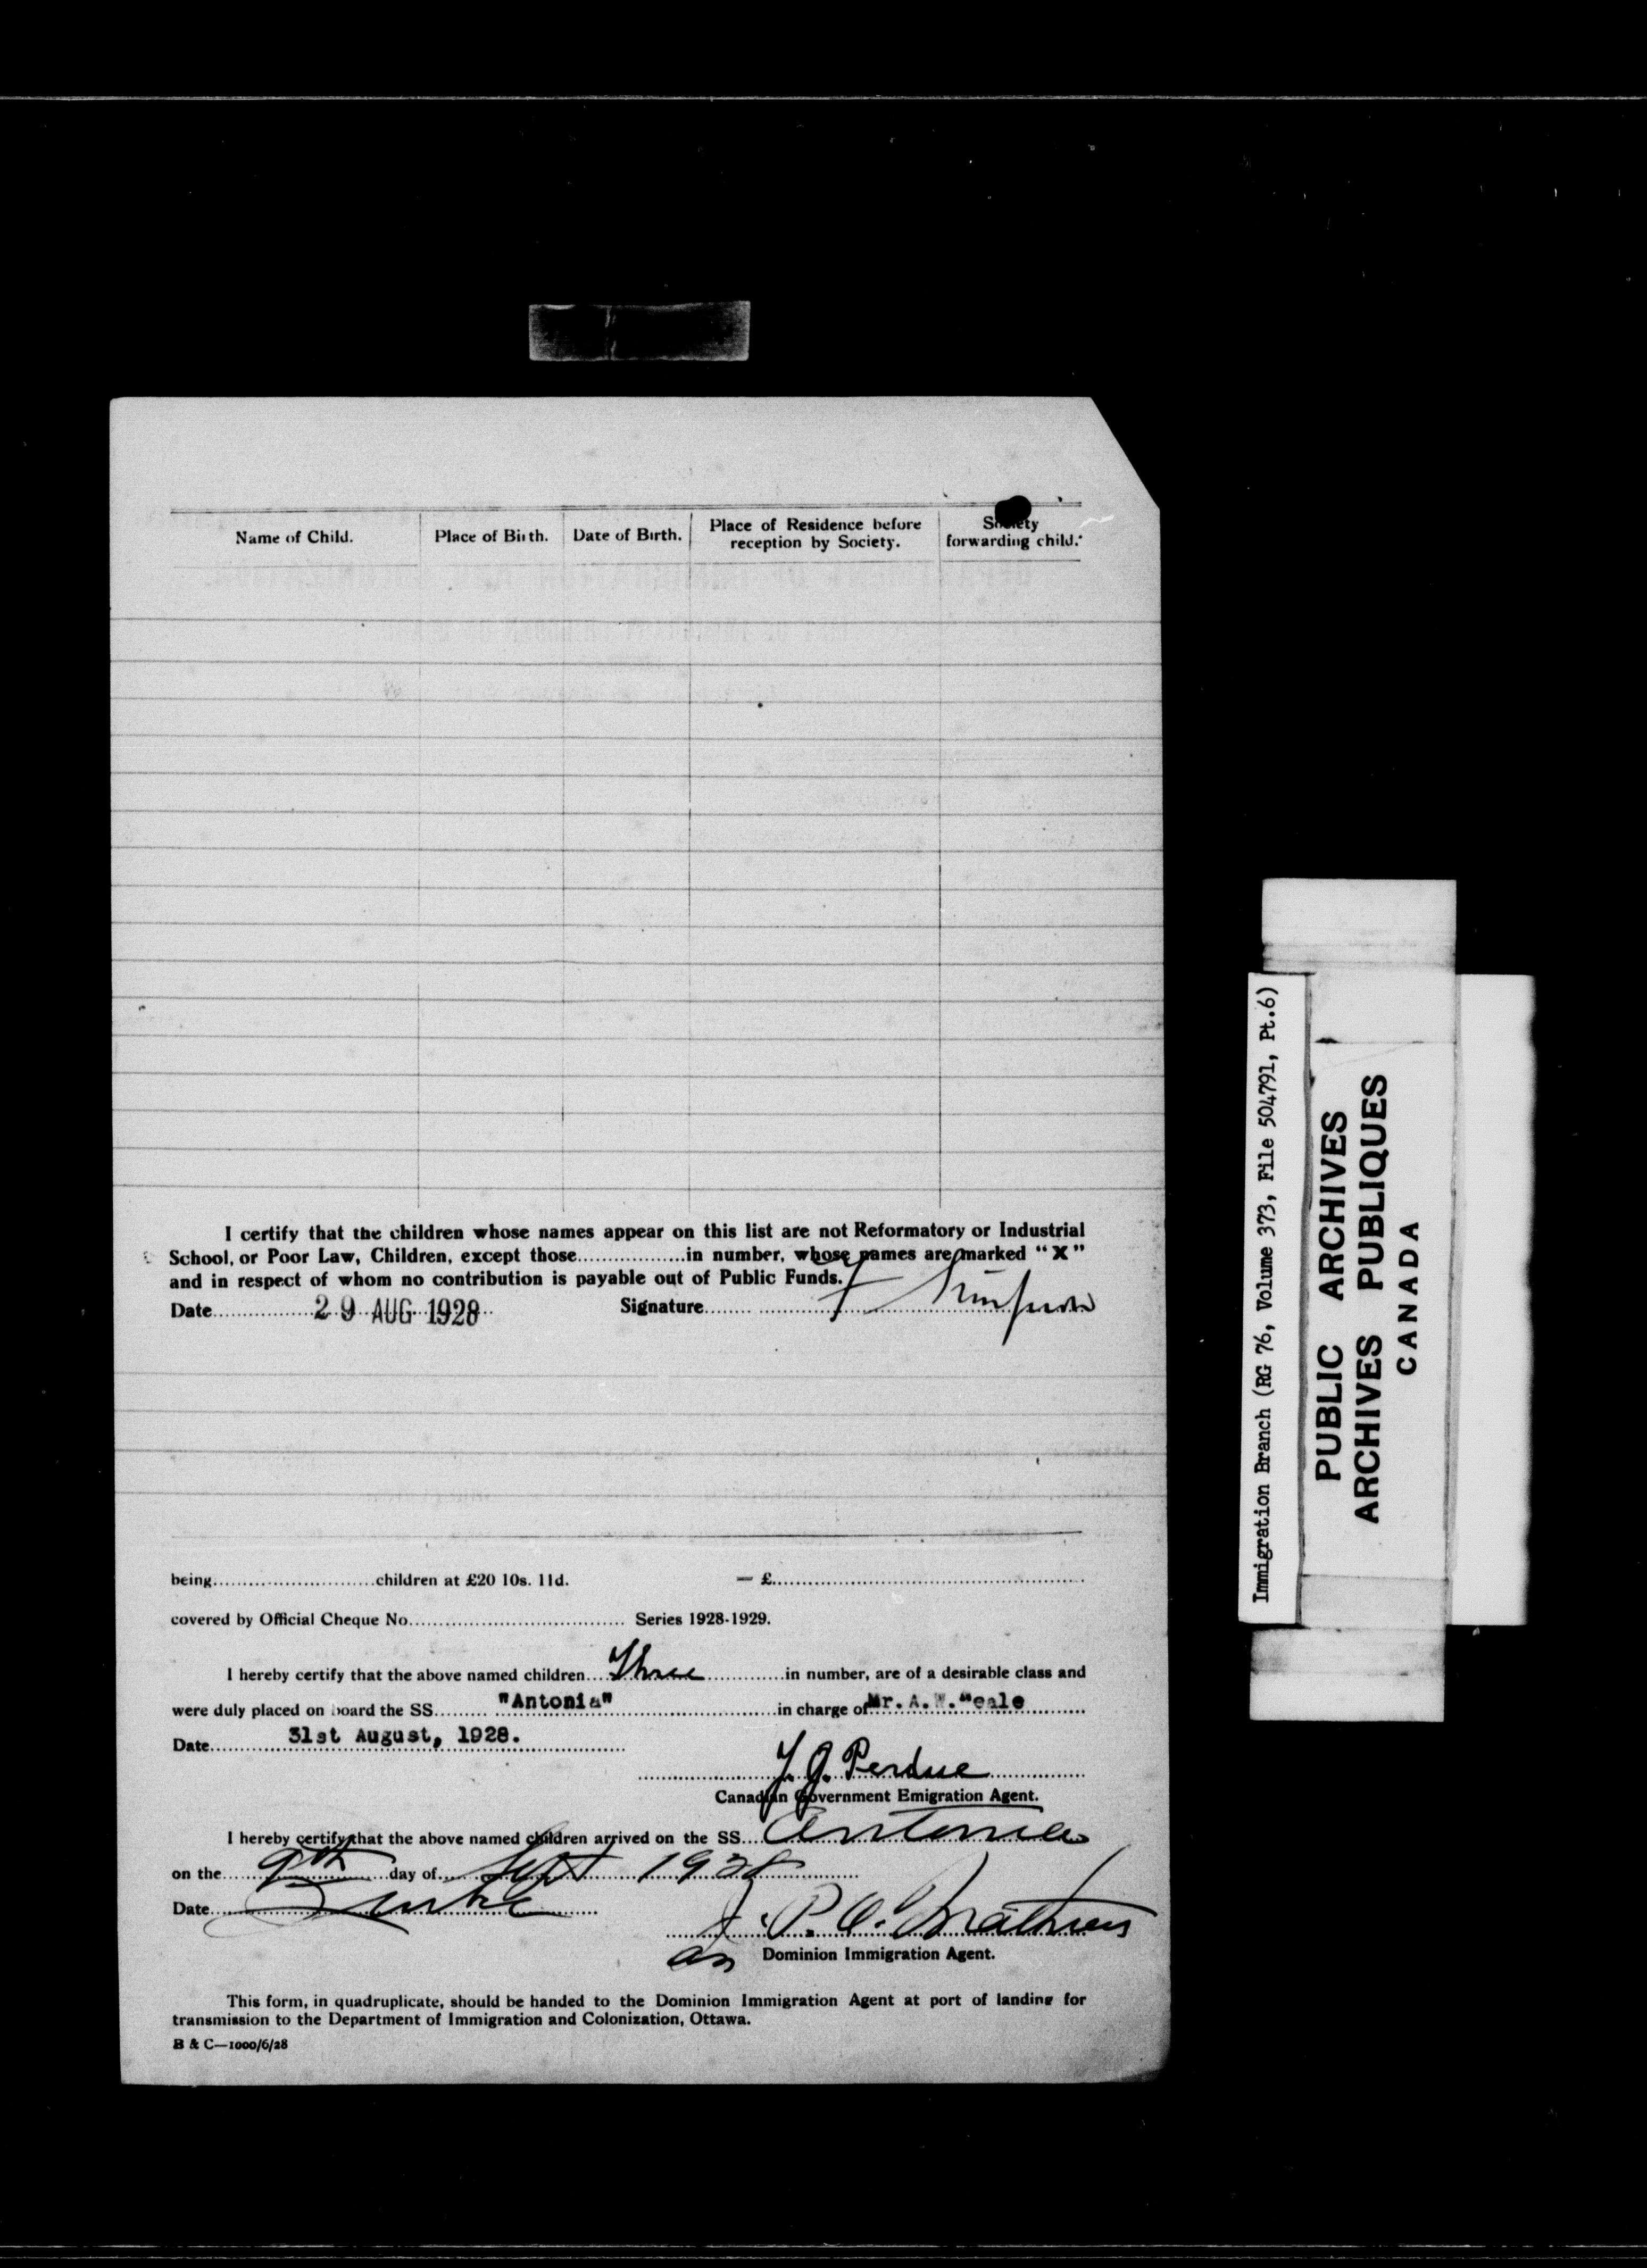 Name of Child.
Place of Birth.
Date of Birth.
Place of Residence before
reception by Society.
Society
forwarding child.
I certify that the children whose names appear on this list are not Reformatory or Industrial
School, or Poor Law, Children, except those.................in number, whose names are marked "X"
and in respect of whom no contribution is payable out of Public Funds.
Date 29 AUG 1928 Signature Simpson
being...........................children at £20 10s. 11d. — £
covered by Official Cheque No................................... Series 1928-1929.
I hereby certify that the above named children Three in number, are of a desirable class and
were duly placed on board the SS. "Antonia" in charge of Mr. A. W. Neale
Date 31st August, 1928.
J. G. Perdue
Canadian Government Emigration Agent.
I hereby certify that the above named children arrived on the SS. Antonia
on the 9th day of Sept 1928
Date
Dominion Immigration Agent.
This form, in quadruplicate, should be handed to the Dominion Immigration Agent at port of landing for
transmission to the Department of Immigration and Colonization, Ottawa.
B & C—1000/6/28
Immigration Branch (RG 76, Volume 373, File 504791, Pt.6)
PUBLIC ARCHIVES
ARCHIVES PUBLIQUES
CANADA